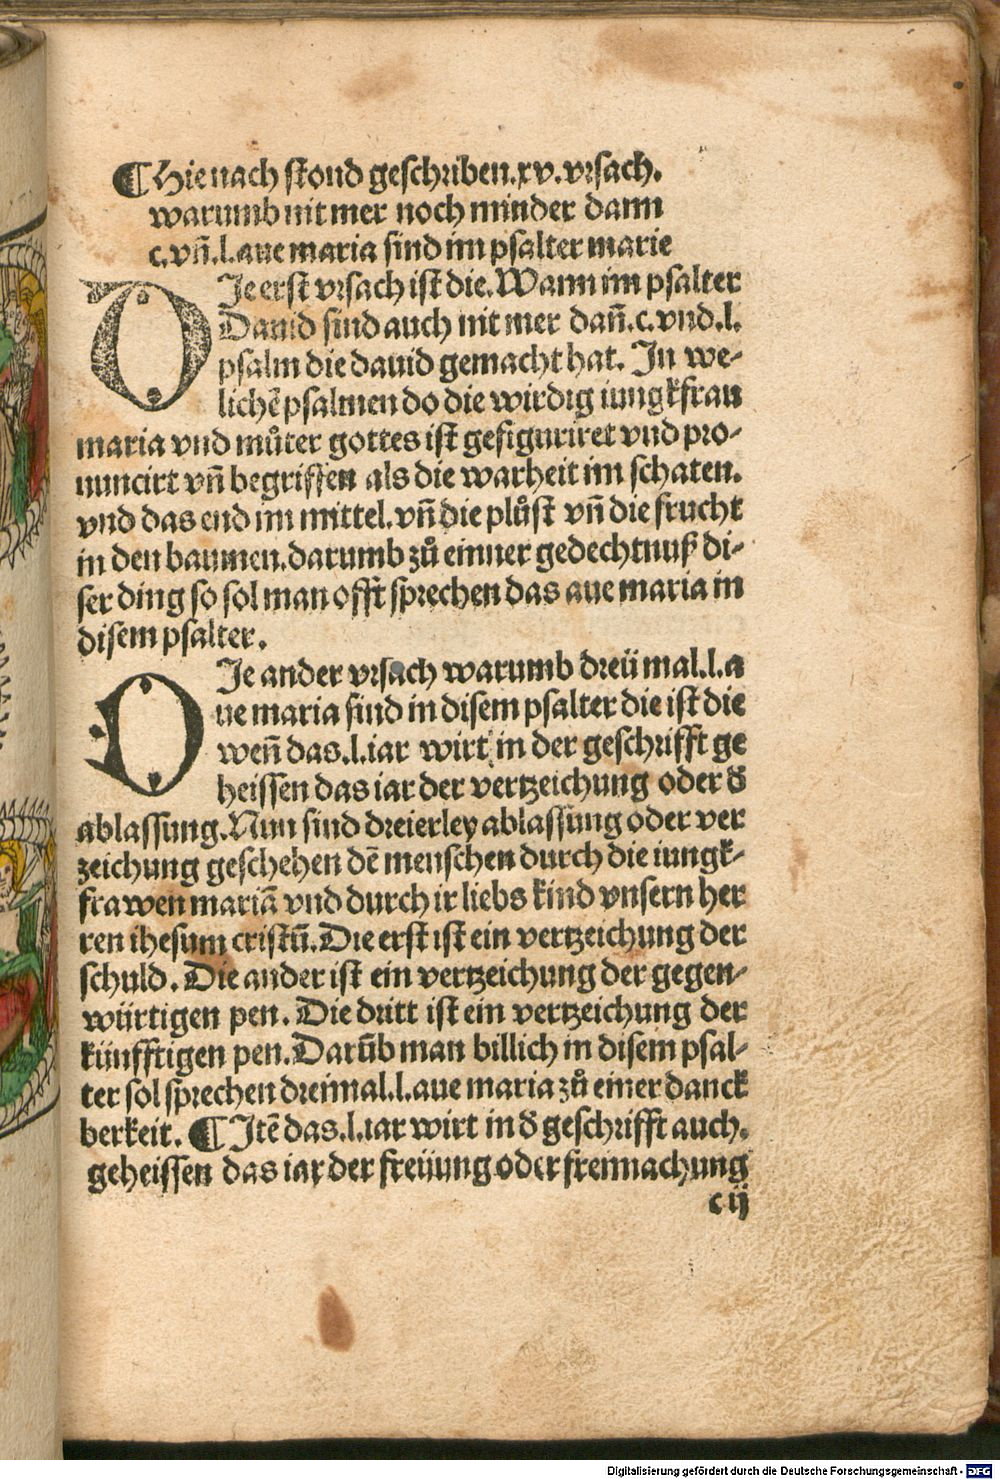 ¶ Hie nach stond geschriben.xv.vrsach.
warumb nit mer noch minder dann
c.vn̄.l.aue maria sind im psalter marie
DIe erst vrsach ist die.Wann im psalter
Dauid sind auch nit mer dan̄.c.vnd.l.
psalm die dauid gemacht hat. In we-
lichē psalmen do die wirdig iungkfrau
maria vnd můter gottes ist gefiguriret vnd pro-
nuncirt vn̄ begriffen als die warheit im schaten.
vnd das end im mittel.vn̄ die plůst vn̄ die frucht
in den baumen.darumb zů einner gedechtnuß di-
ser ding so sol man offt sprechen das aue maria in
disem psalter.
DIe ander vrsach warumb dreü mal.l.a
ue maria sind in disem psalter die ist die
wen̄ das.l.iar wirt in der geschrifft ge
heissen das iar der vertzeichung oder d̕
ablassung.Nun sind dreierley ablassung oder ver
zeichung geschehen dē menschen durch die iungk-
frawen mariā vnd durch ir liebs kind vnsern her
ren ihesum cristū.Die erst ist ein vertzeichung der
schuld. Die ander ist ein vertzeichung der gegen-
würtigen pen. Die dritt ist ein vertzeichung der
künfftigen pen.Darūb man billich in disem psal-
ter sol sprechen dreimal.l.aue maria zů einer danck
berkeit. ¶ Itē das.l.iar wirt in d̕ geschrifft auch.
geheissen das iar der freiiung oder freimachung
c ij
Digitalisierung gefördert durch die Deutsche Forschungsgemeinschaft - DFG